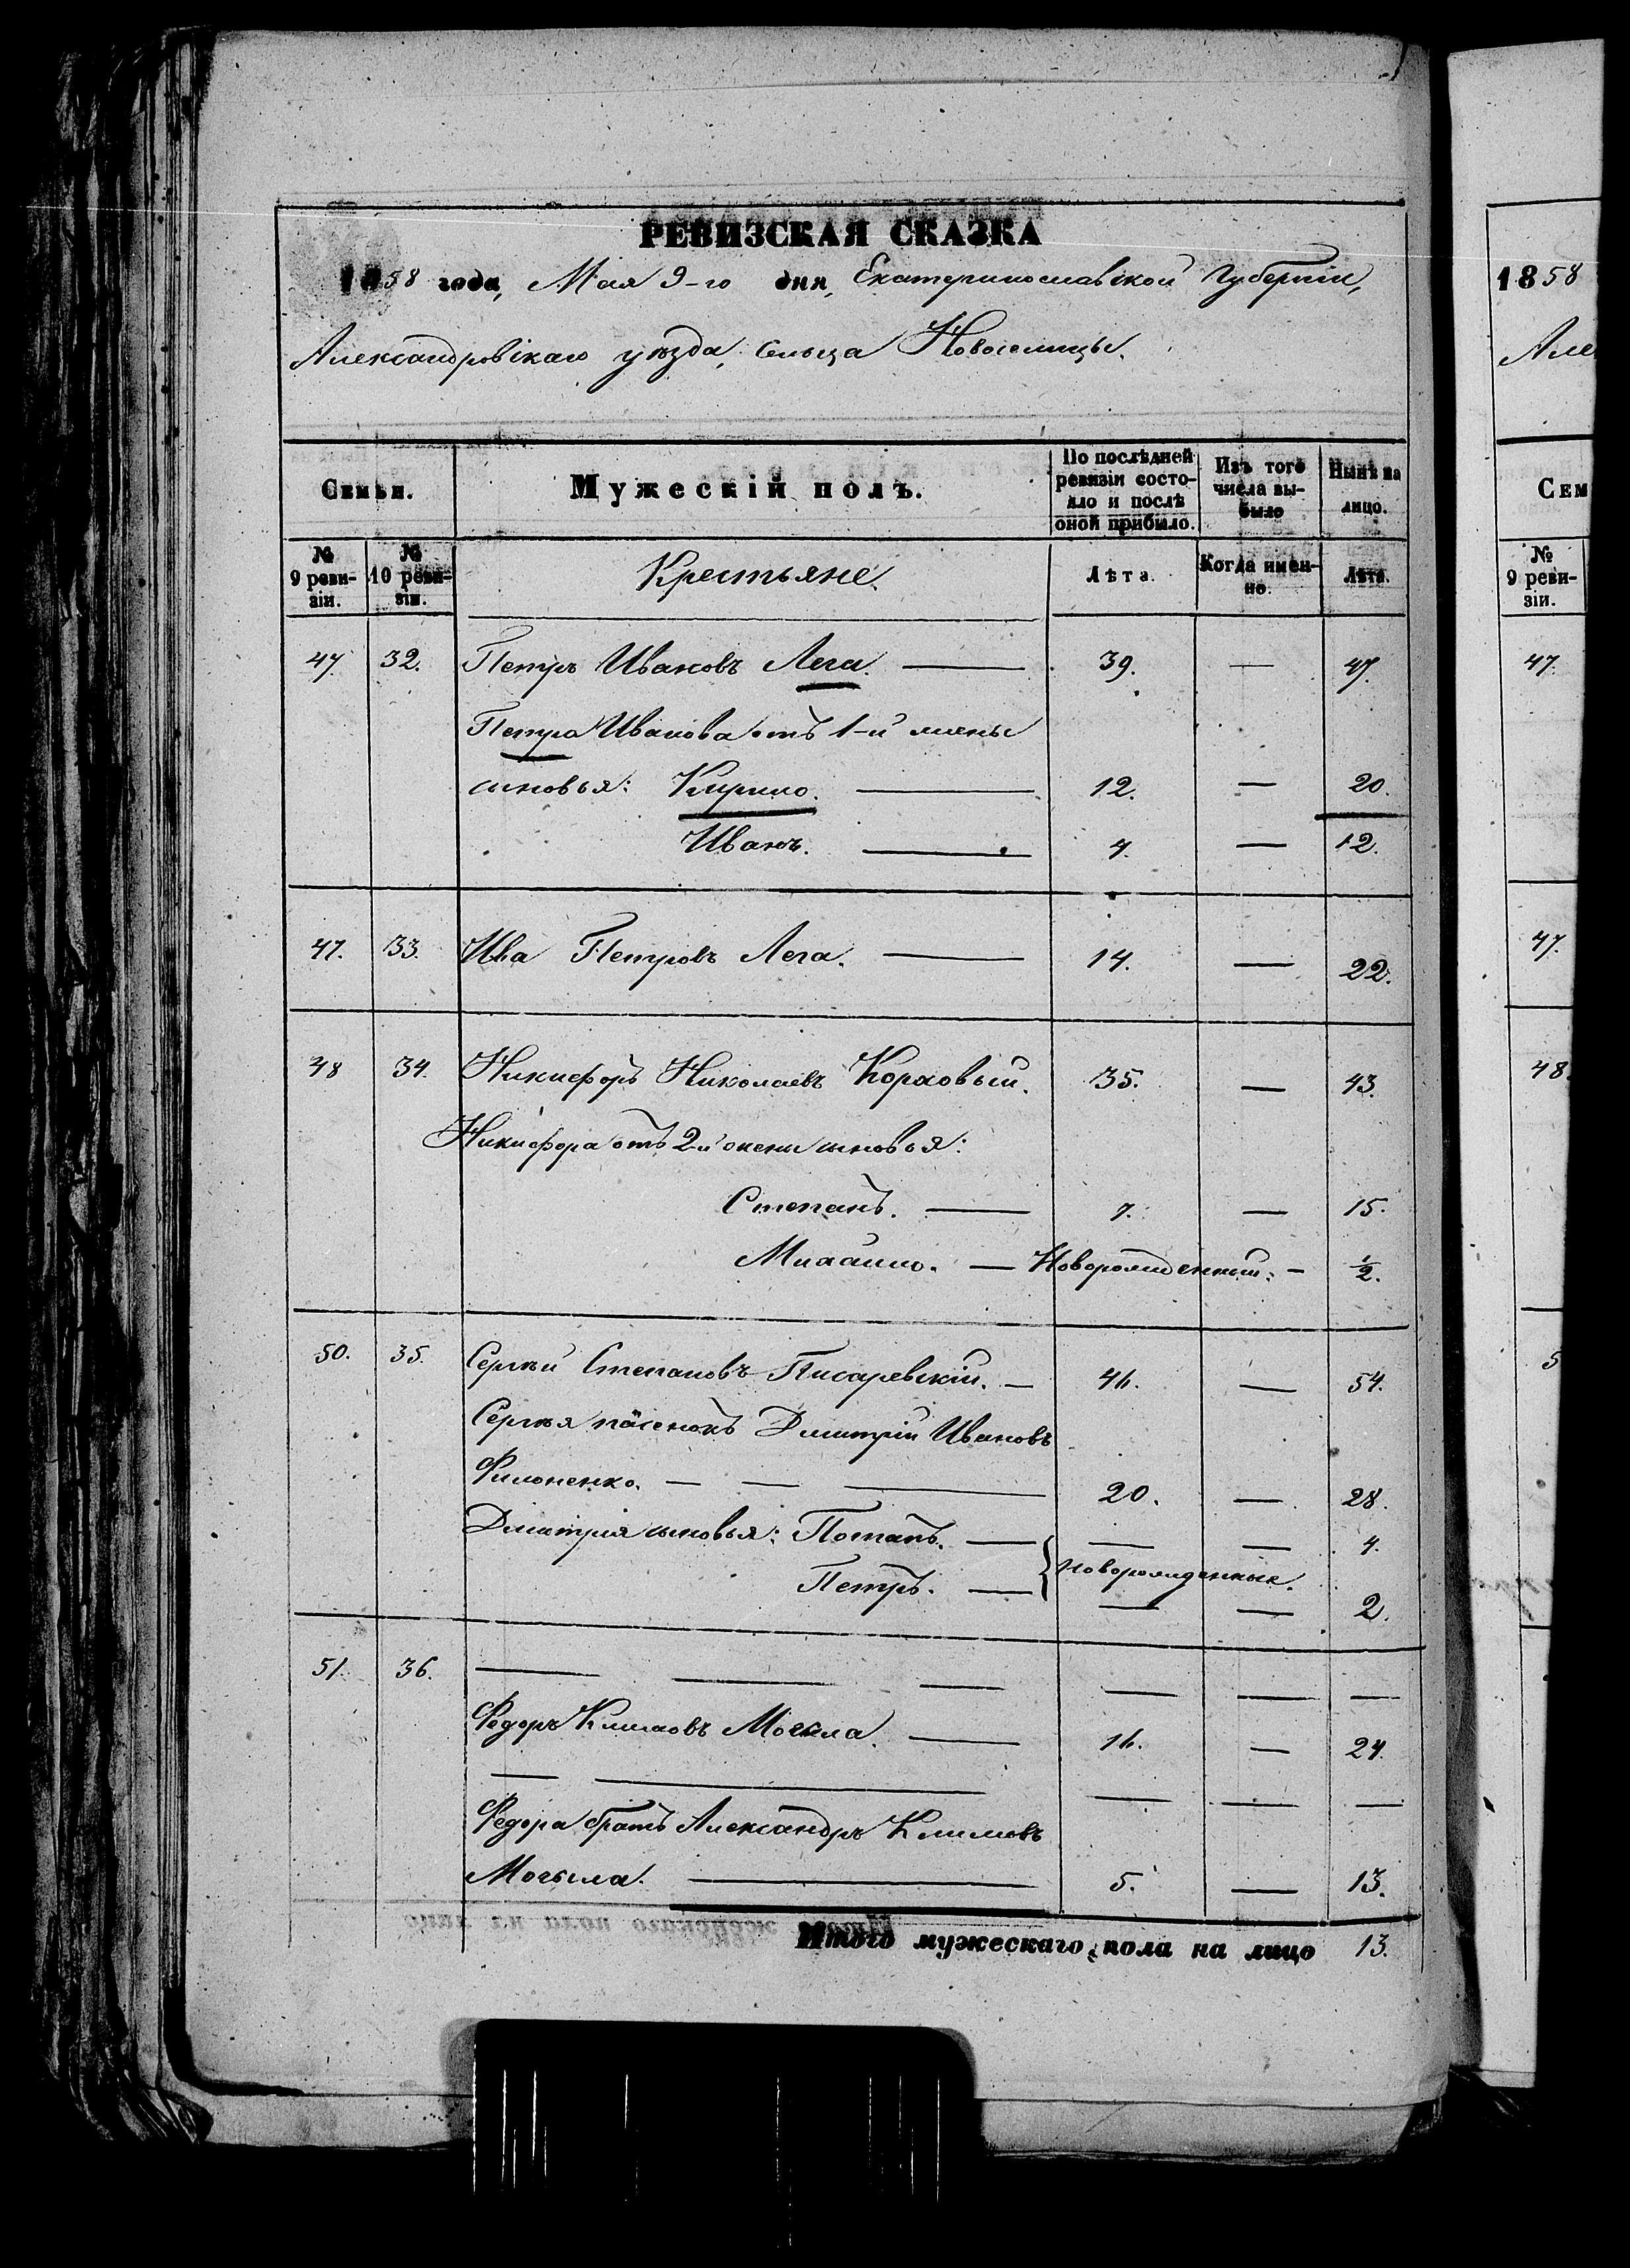 РЕВИЗСКАЯ СКАЗКА
1858 года, Мая 9-го дня, Екатеринославской Губерніи,
Александровскаго уѣзда, сельца Новоселицы.
Семьи.
Мужескій полъ.
По послѣдней ревизіи состояло и послѣ оной прибыло.
Изъ того числа выбыло
Нынѣ на лицо.
№ 9 ревизіи.
№ 10 ревизіи.
Крестьяне
Лѣта.
Когда именно.
Лѣта.
47. 32. Петръ Ивановъ Лега. — 39. — 47.
Петра Иванова отъ 1-й жены
сыновья: Кирило. — 12. — 20.
Иванъ. — 4. — 12.
47. 33. Ива Петровъ Лега. — 14. — 22.
48 34. Никифоръ Николаевъ Корховый. 35. — 43.
Никифора отъ 2й жены сыновья:
Степанъ. — 7. — 15.
— Новорожденный. — 1/2.
50. 35. Сергѣй Степановъ Писаревскій. — 46. — 54.
Сергѣя пасенокъ Дмитрій Ивановъ
Филоненко. — — — 20. — 28.
Дмитрія сыновья: Потапъ. — — — 4.
новорожденные.
Петръ. — — — 2.
51. 36. — — — — — —
Федоръ Климовъ Могила. — 16. — 24.
— — — — —
Федора братъ Александръ Климовъ
Могыла. — 5. — 13.
Итого мужескаго пола на лицо 13.
1858
Але
Сем
№ 9 ревизіи.
47.
47.
48.
5